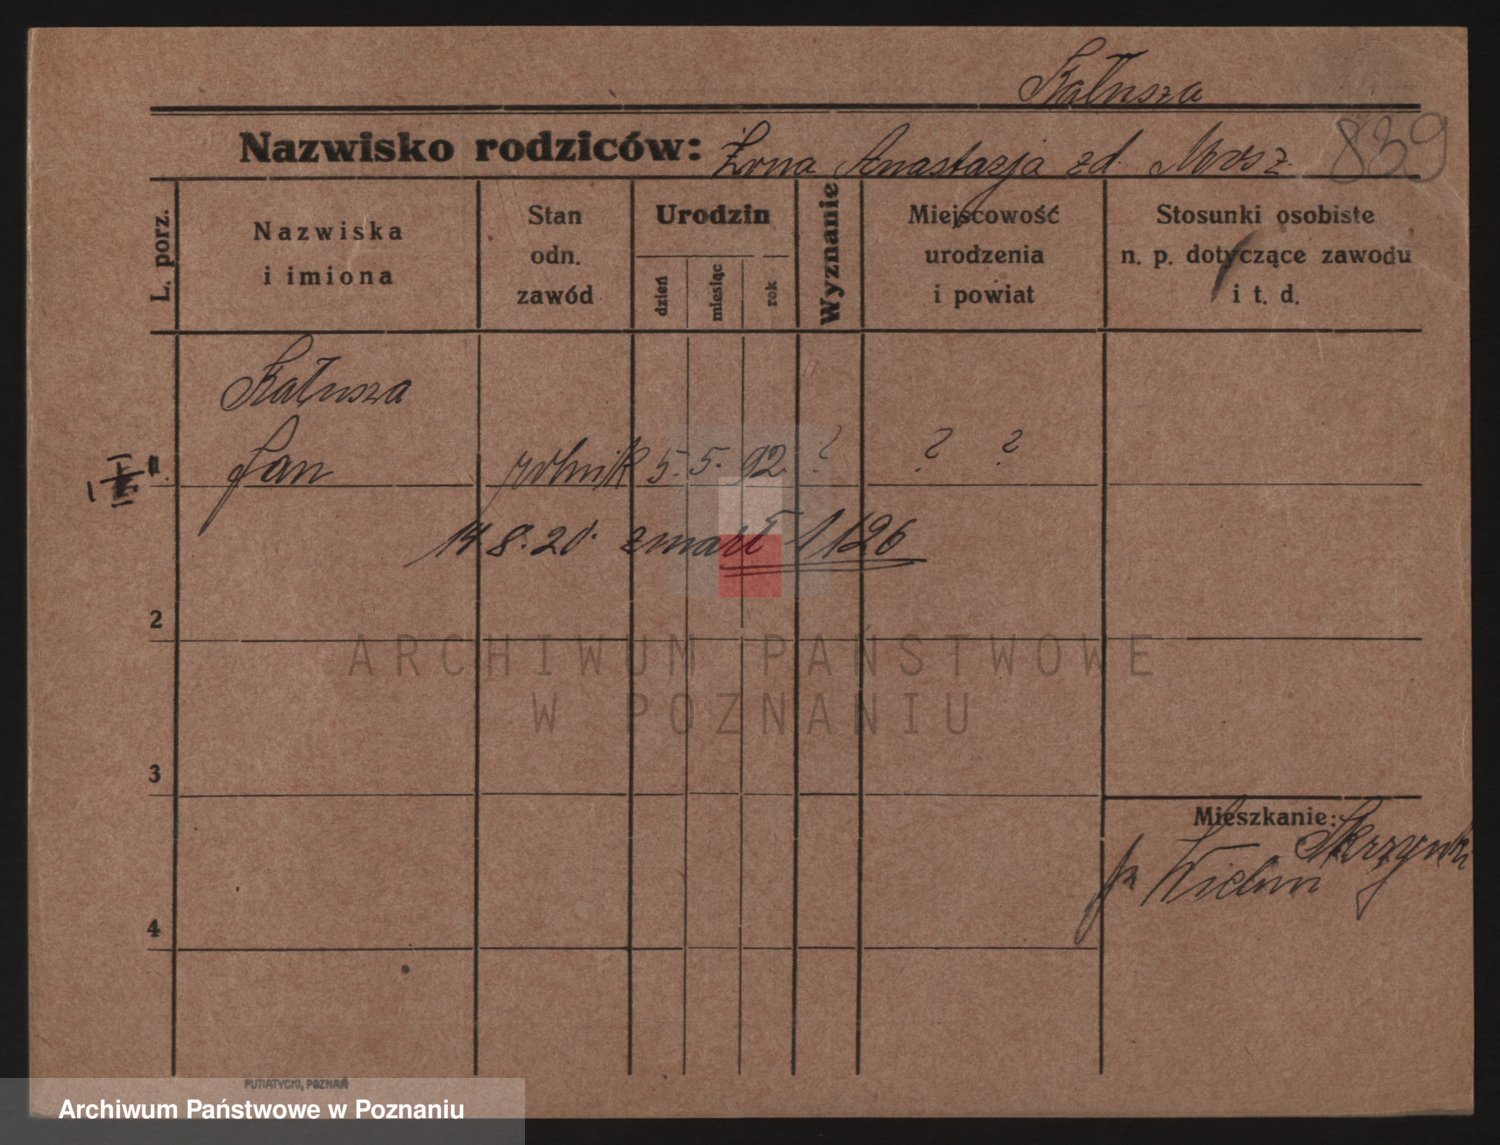 Kałusza
839
Nazwisko rodziców: Żona Anastazja zd.
L. porz.
Nazwiska
i imiona
Stan
odn.
zawód
Urodzin
dzień
miesiąc
rok
Wyznanie
Miejscowość
urodzenia
i powiat
Stosunki osobiste
n. p. dotyczące zawodu
i t. d.
Kałusza
Jan rolnik 5. 5. 92 ? ? ?
14 8. 20. zmarł 1126
2
ARCHIWUM PAŃSTWOWE
W POZNANIU
3
Mieszkanie:
Skrzynki
Wieluń
4
PUTIATYCKI, POZNAŃ
Archiwum Państwowe w Poznaniu